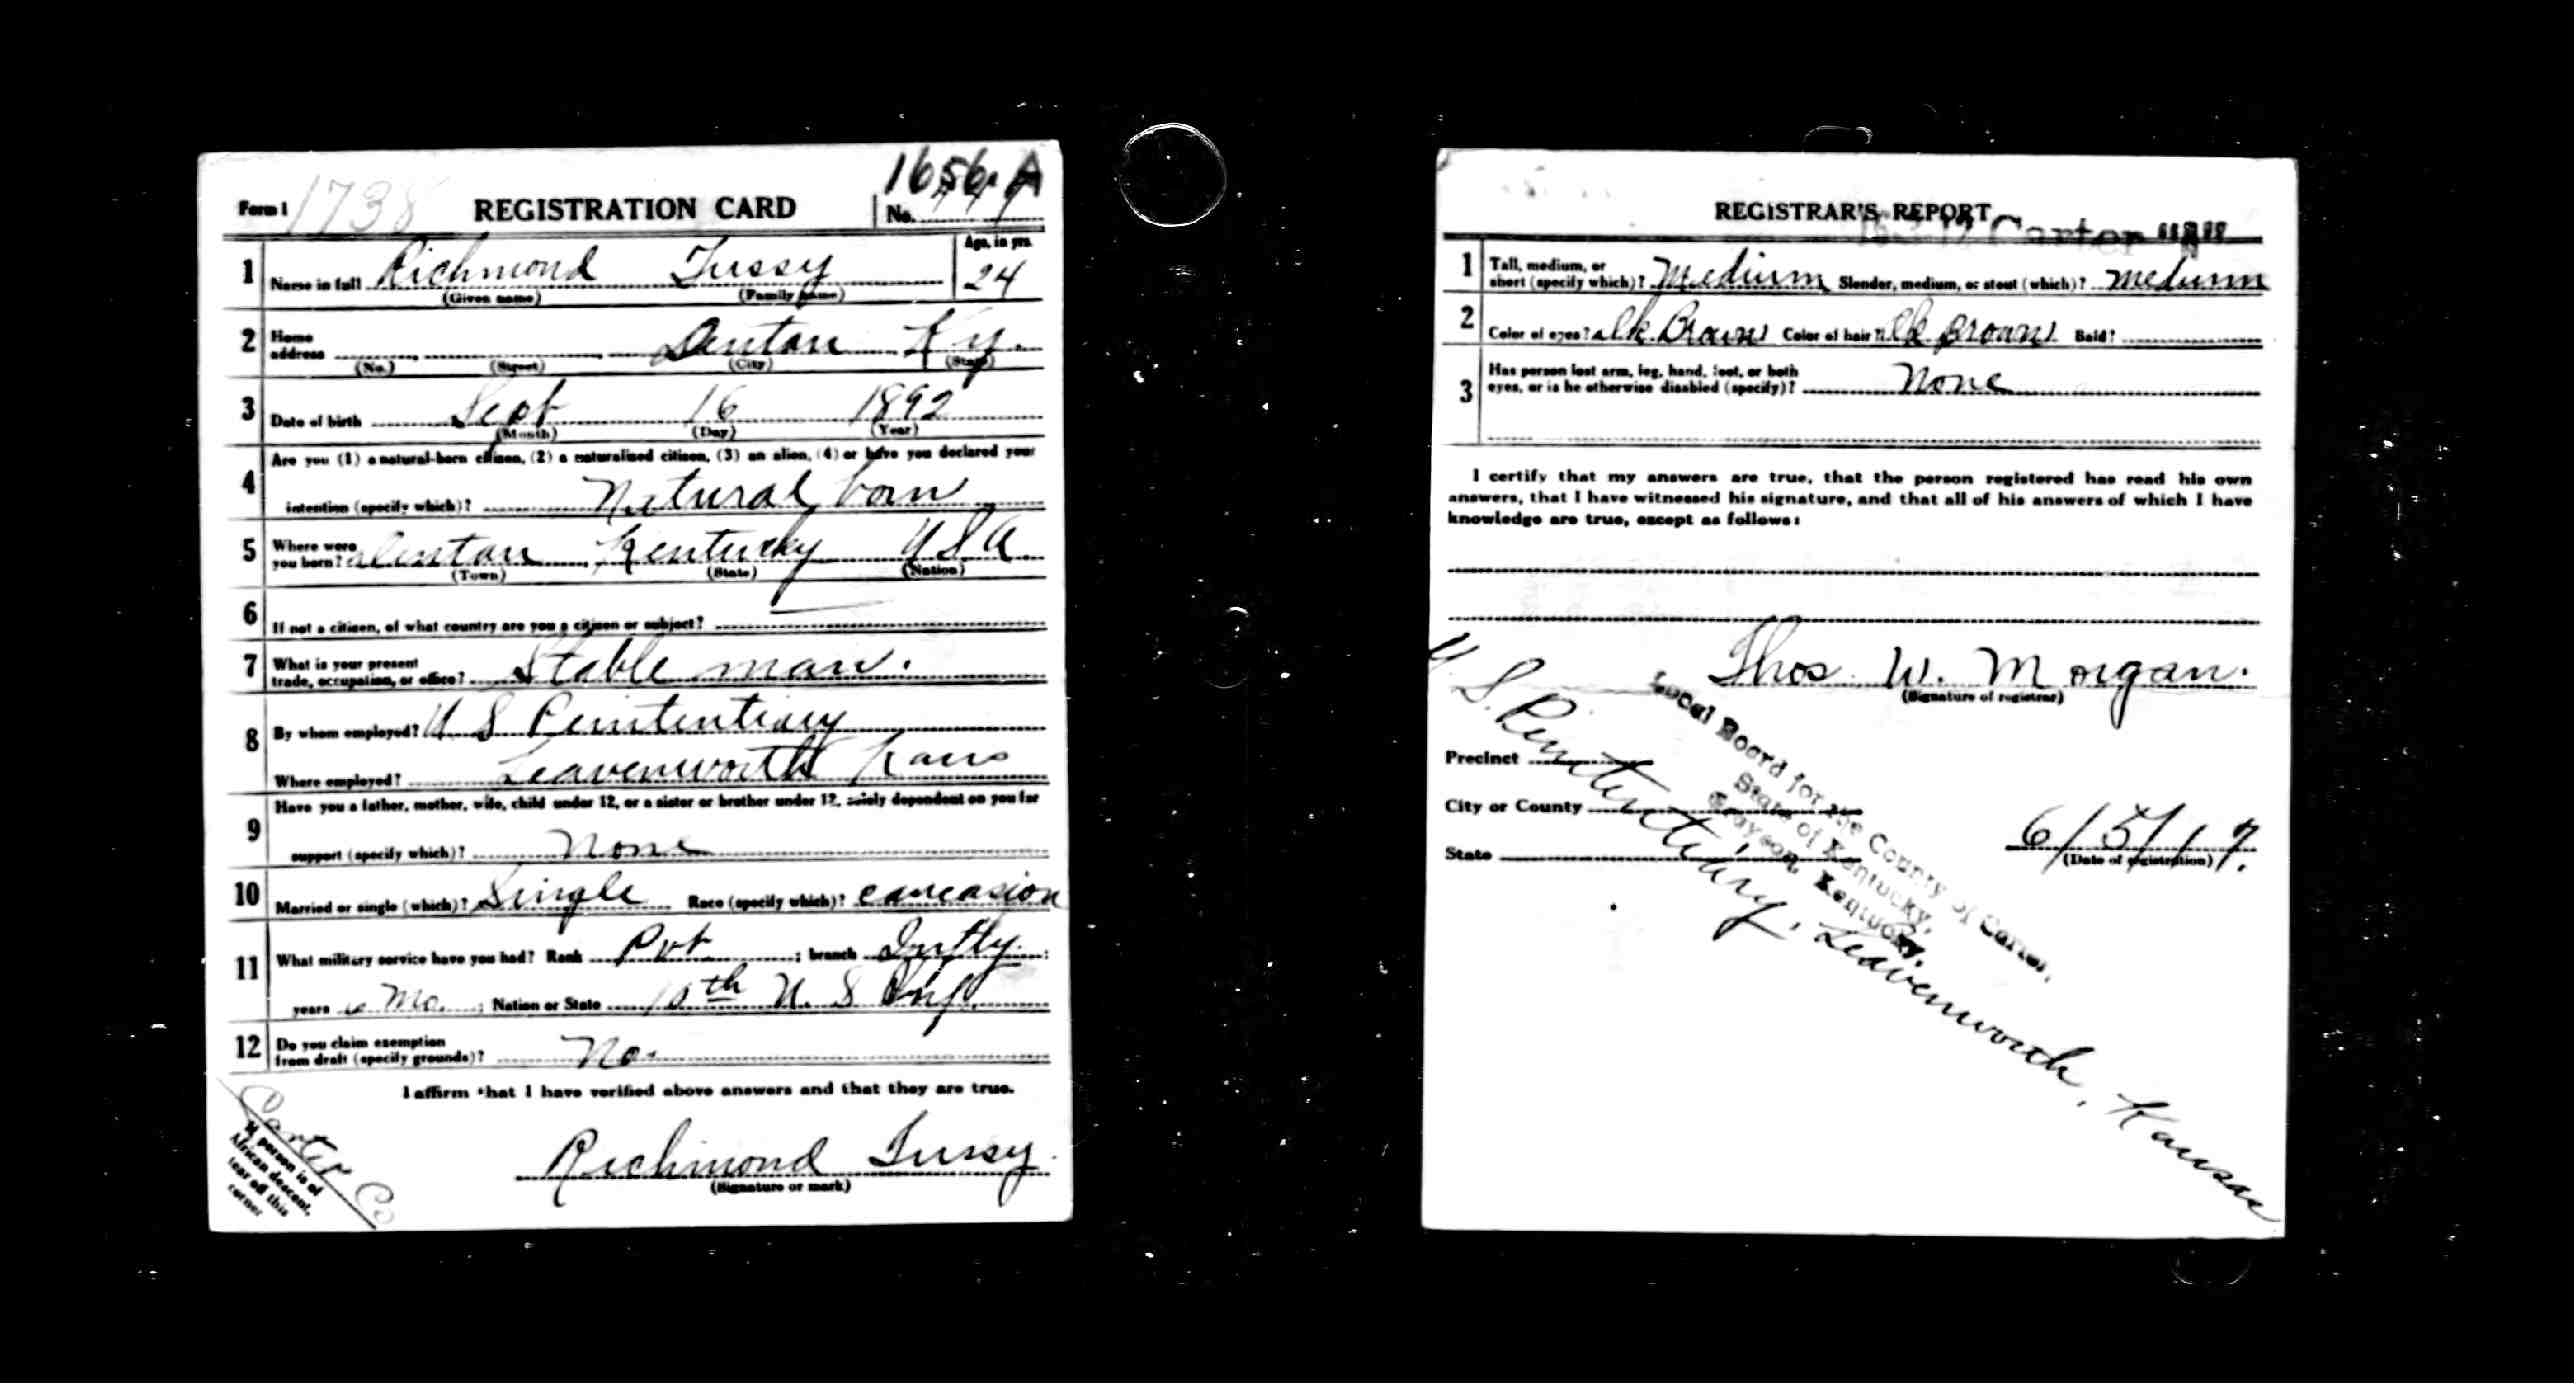 1656 A
Form 1 1738 REGISTRATION CARD No.
1 Name in full Richmond Tussy Age, in yrs. 24
(Given name) (Family name)
2 Home address Denton Ky.
(No.) (Street) (City) (State)
3 Date of birth Sept 16 1892
(Month) (Day) (Year)
4 Are you (1) a natural-born citizen, (2) a naturalized citizen, (3) an alien, (4) or have you declared your
intention (specify which)? Natural born
5 Where were you born? Denton Kentucky USA
(Town) (State) (Nation)
6 If not a citizen, of what country are you a citizen or subject?
7 What is your present trade, occupation, or office? Stable man.
8 By whom employed? U S Penitentiary
Where employed? Leavenworth Kans
9 Have you a father, mother, wife, child under 12, or a sister or brother under 12, solely dependent on you for
support (specify which)? None
10 Married or single (which)? Single Race (specify which)? caucasion
11 What military service have you had? Rank Pvt ; branch Inftly. ;
years Mo. ; Nation or State 10th U. S Inf.
12 Do you claim exemption from draft (specify grounds)? No.
I affirm that I have verified above answers and that they are true.
Richmond Tussy.
(Signature or mark)
Carter Co
If person is of
African descent,
tear off this
corner
REGISTRAR'S REPORT
Carter
1 Tall, medium, or short (specify which)? Medium Slender, medium, or stout (which)? medium
2 Color of eyes? dk. Brown Color of hair? dk Brown Bald?
3 Has person lost arm, leg, hand, foot, or both
eyes, or is he otherwise disabled (specify)? None
I certify that my answers are true, that the person registered has read his own
answers, that I have witnessed his signature, and that all of his answers of which I have
knowledge are true, except as follows:
Thos W. Morgan.
(Signature of registrar)
Precinct
City or County
State
6/5/17.
(Date of registration)
Local Board for the County of Carter,
State of Kentucky,
Grayson, Kentucky.
U S. Penitentiary, Leavenworth, Kansas